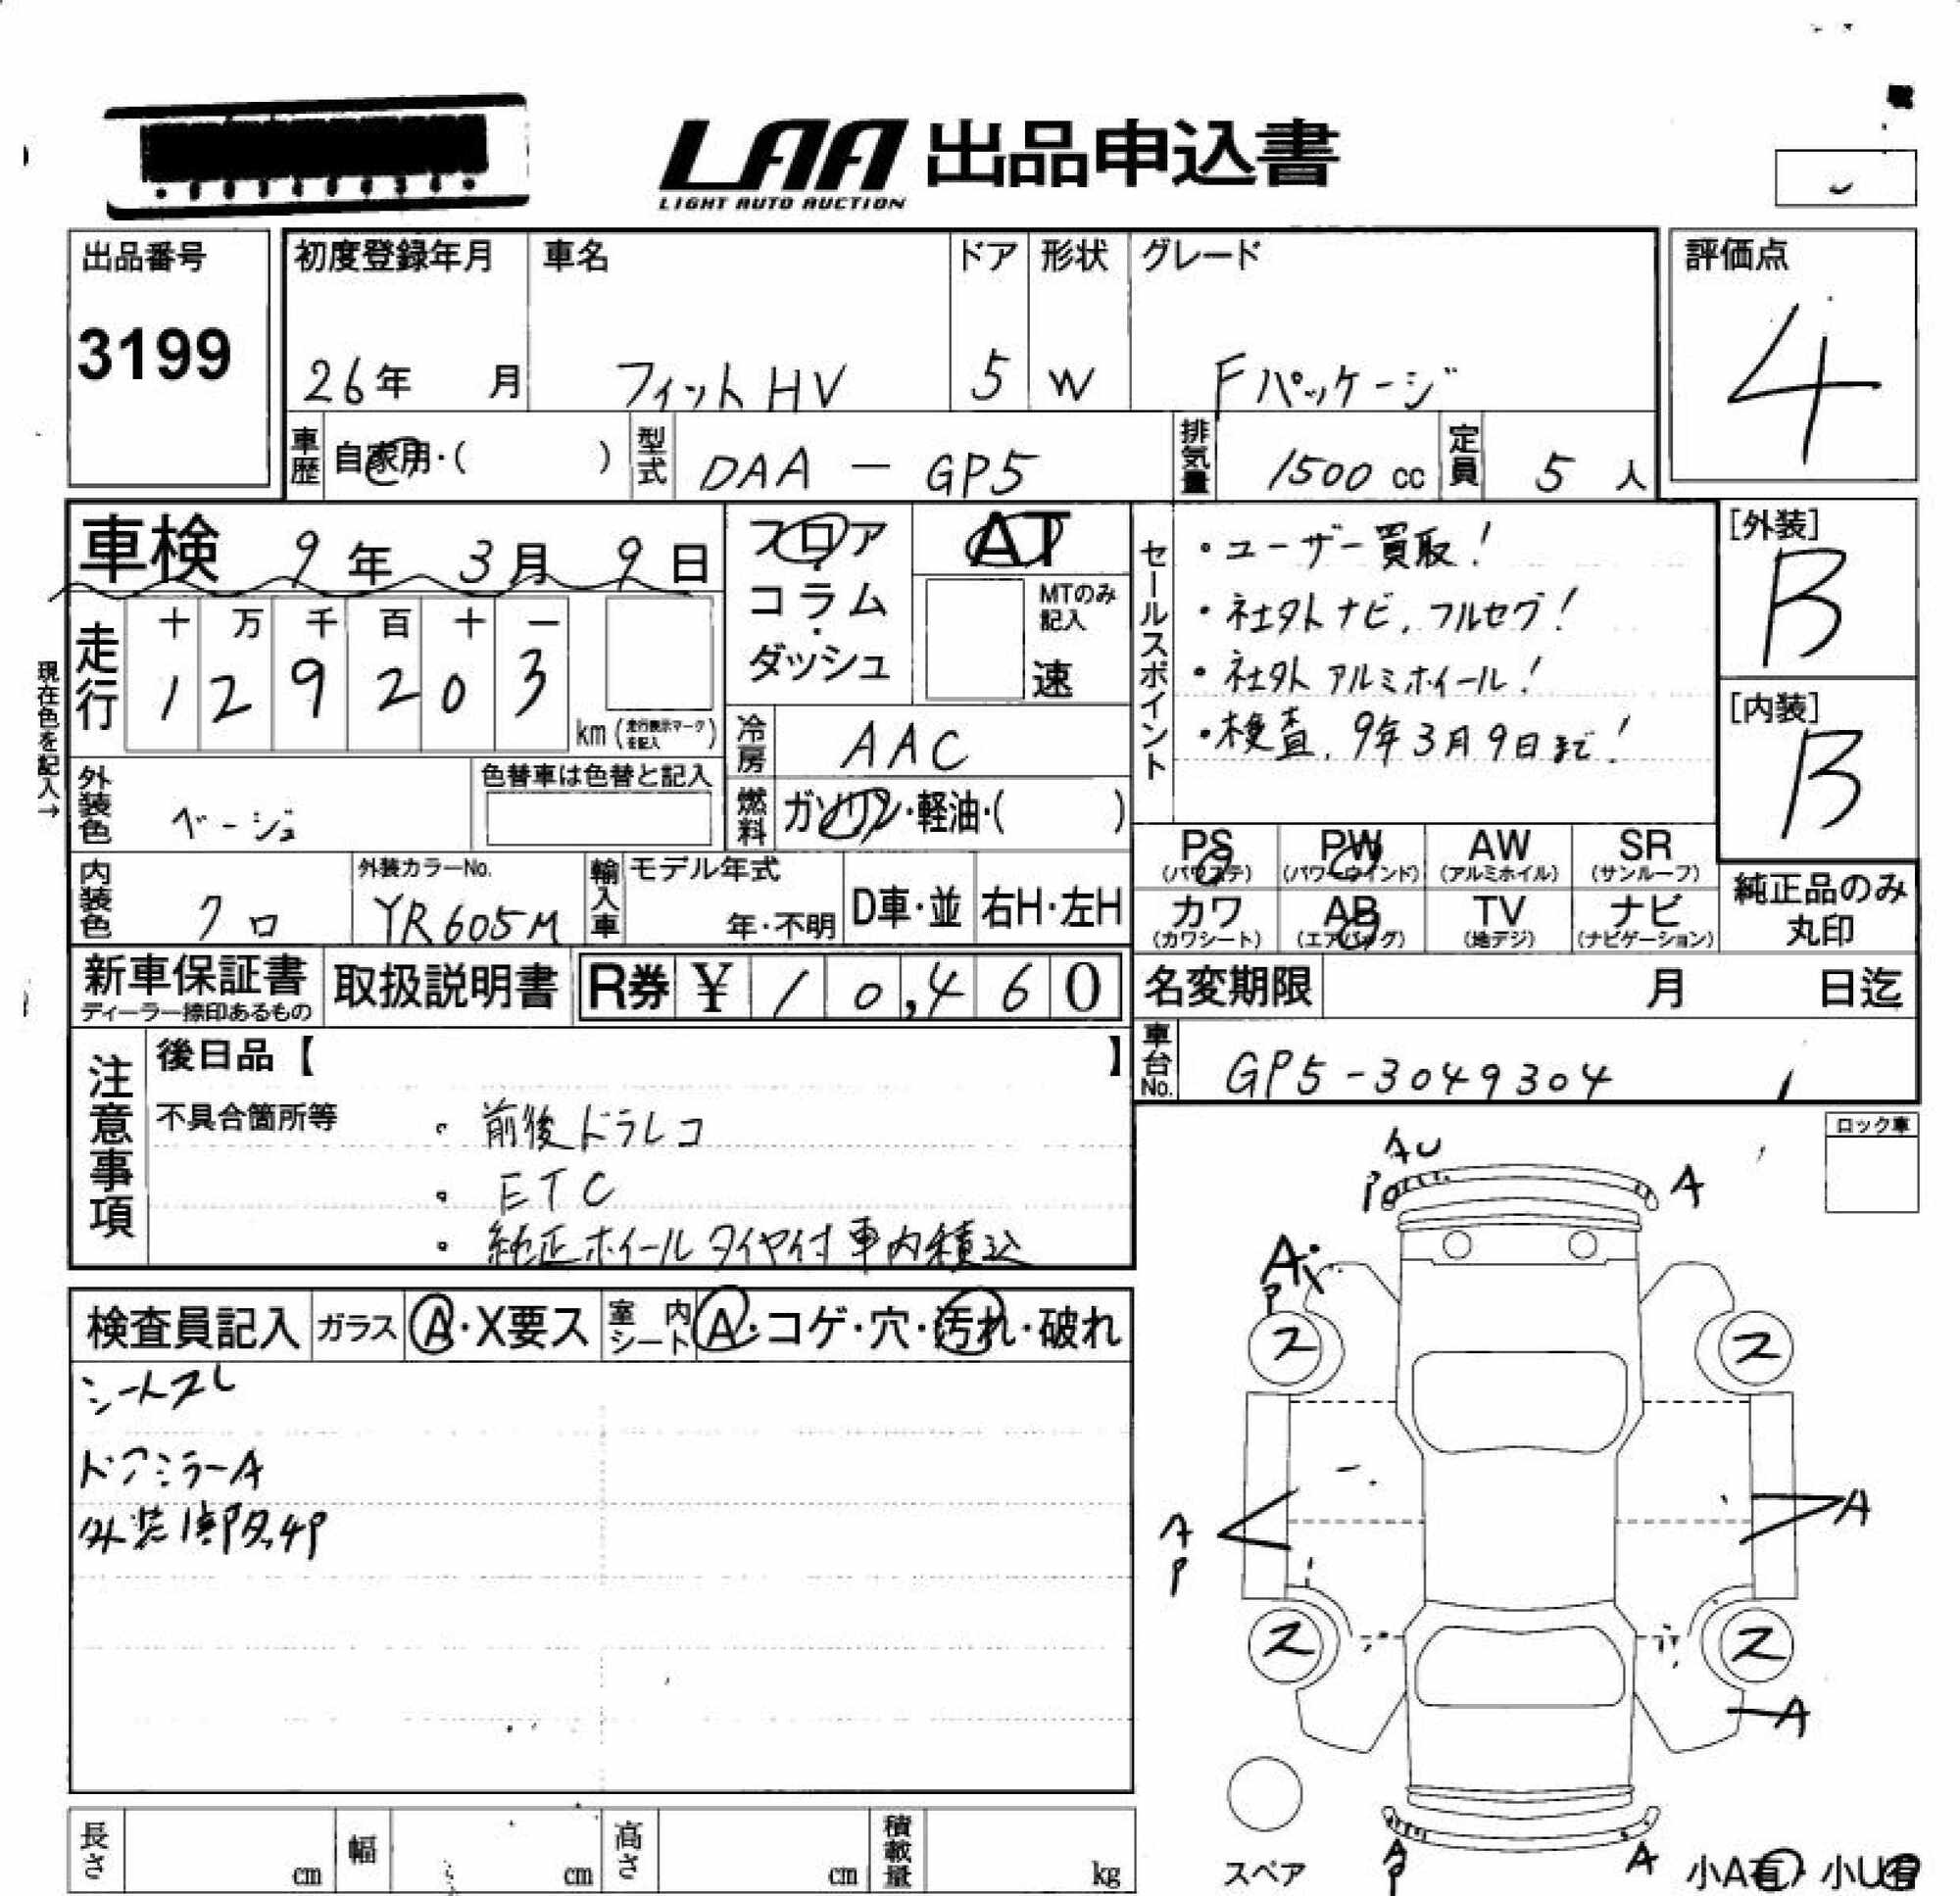 LAA 出品申込書
LIGHT AUTO AUCTION
出品番号
3199
初度登録年月 車名 ドア 形状 グレード
26年 月 フィットHV 5 W Fパッケージ
評価点
4
車歴 自家用・( ) 型式 DAA - GP5 排気量 1500 cc 定員 5 人
車検 9年 3月 9日
現在色を記入→
走行 十 万 千 百 十 一
1 2 9 2 0 3 km (走行表示マークを記入)
フロア
コラム
・
ダッシュ
AT
MTのみ記入
速
冷房 AAC
燃料 ガソリン・軽油・( )
セールスポイント
・ユーザー買取!
・社外ナビ,フルセグ!
・社外アルミホイール!
・検査,9年3月9日まで!
[外装]
B
[内装]
B
外装色 ベージュ 色替車は色替と記入
内装色 クロ 外装カラーNo. YR605M 輸入車 モデル年式 年・不明 D車・並 右H・左H
PS (パワステ) PW (パワーウインド) AW (アルミホイル) SR (サンルーフ)
カワ (カワシート) AB (エアバッグ) TV (地デジ) ナビ (ナビゲーション)
純正品のみ
丸印
新車保証書 ディーラー捺印あるもの 取扱説明書 R券 ¥ 10,460
名変期限 月 日迄
車台No. GP5-3049304
注意事項
後日品【 】
不具合箇所等 ・前後ドラレコ
・ETC
・純正ホイールタイヤ付車内積込
ロック車
検査員記入 ガラス A・X要ス 室内シート A・コゲ・穴・汚れ・破れ
シートスレ
ドアミラーA
外装
AU
P
A
A
P
ス ス
A
P
A
ス ス
A
スペア
A
P
A
小A有・小U有
長さ cm 幅 cm 高さ cm 積載量 kg